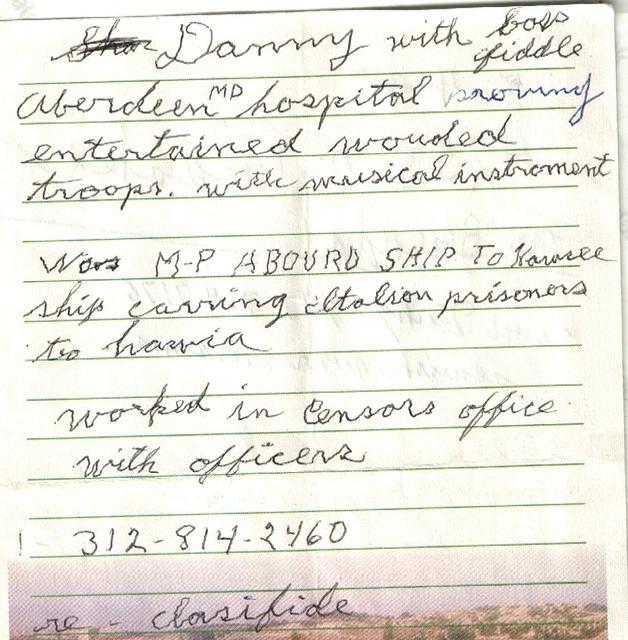 Danny with boss
fiddle
Aberdeen MD hospital proving
entertained wouded
troops. with musical instroment
Was M-P ABOURD SHIP TO Hawaee
ship carring Italion prisoners
to hawia
worked in Censors office
with officers
1 - 312-814-2460
re - clasifide